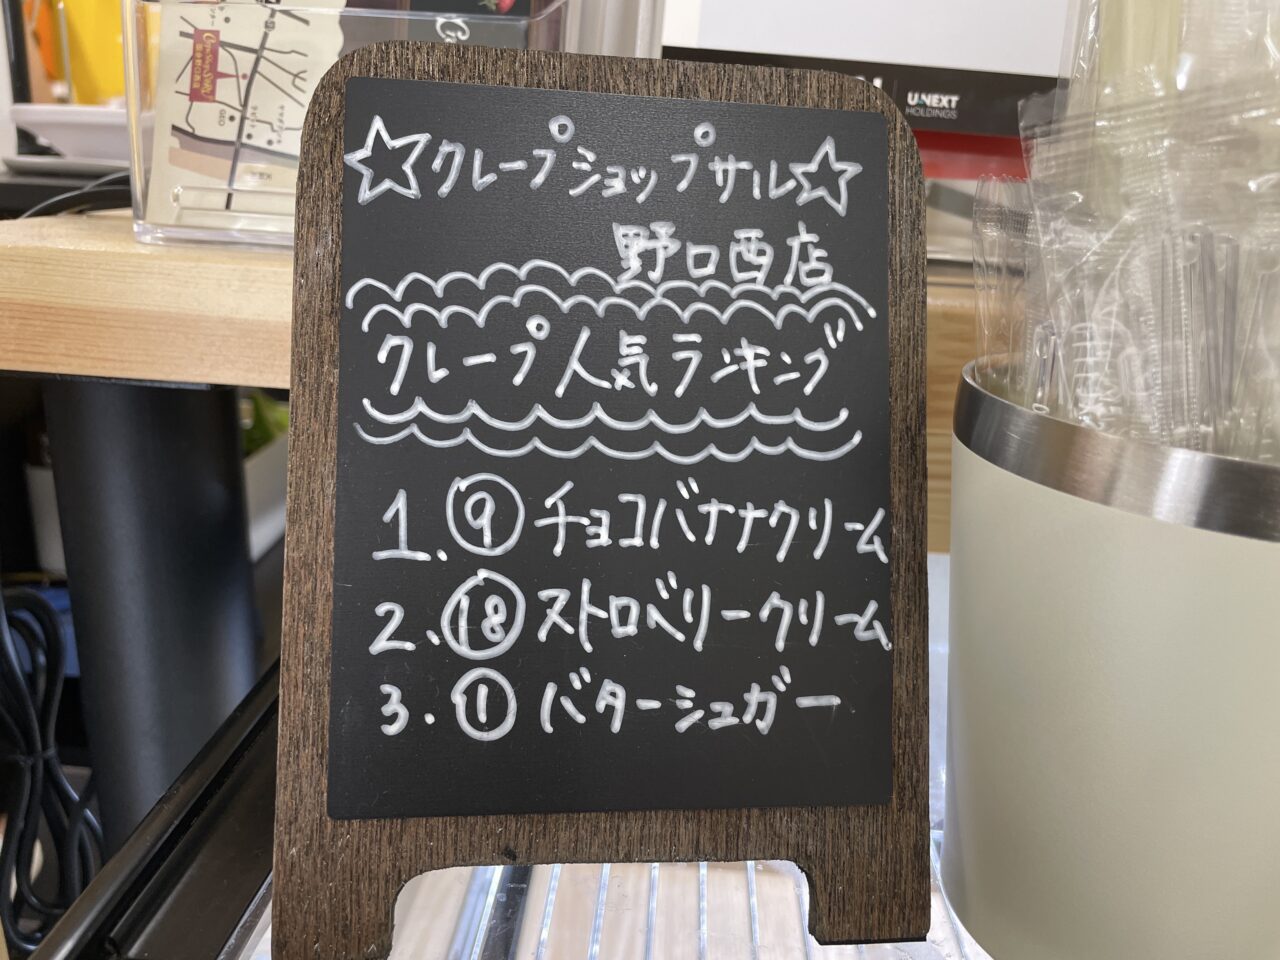 ☆クレープショップサル☆
野口西店
クレープ人気ランキング
1. ⑨ チョコバナナクリーム
2. ⑱ ストロベリークリーム
3. ① バターシュガー
U-NEXT
HOLDINGS
GEO